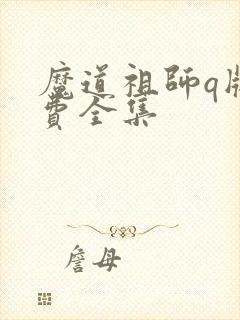 魔道祖师q版
費全集
詹母